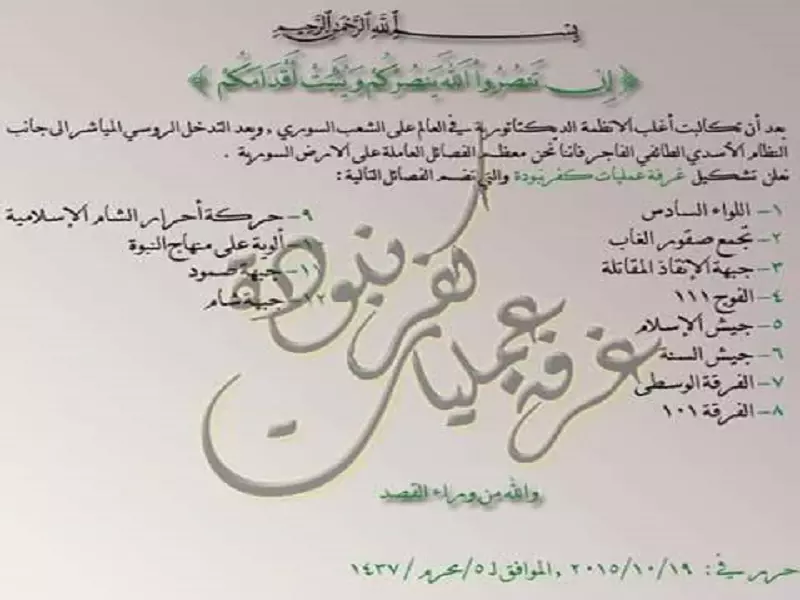 بسم الله الرحمن الرحيم
﴿ إن تنصروا الله ينصركم ويثبت أقدامكم ﴾
بعد أن تكالبت أغلب الانظمة الديكتاتورية في العالم على الشعب السوري , وبعد التدخل الروسي المباشر إلى جانب
النظام الأسدي الطائفي الفاجر فاننا نحن معظم الفصائل العاملة على الارض السورية .
نعلن تشكيل غرفة عمليات كفرنبودة والتي تضم الفصائل التالية :
١- اللواء السادس
٢- تجمع صقور الغاب
٣- جبهة الإنقاذ المقاتلة
٤- الفوج ١١١
٥- جيش الإسلام
٦- جيش السنة
٧- الفرقة الوسطى
٨- الفرقة ١٠١
٩- حركة أحرار الشام الإسلامية
١٠- ألوية على منهاج النبوة
١١- جبهة صمود
١٢- جبهة شام
غرفة عمليات كفرنبودة
والله من وراء القصد
حرر في : ٢٠١٥/١٠/١٩ , الموافق لـ ٥/محرم/١٤٣٧